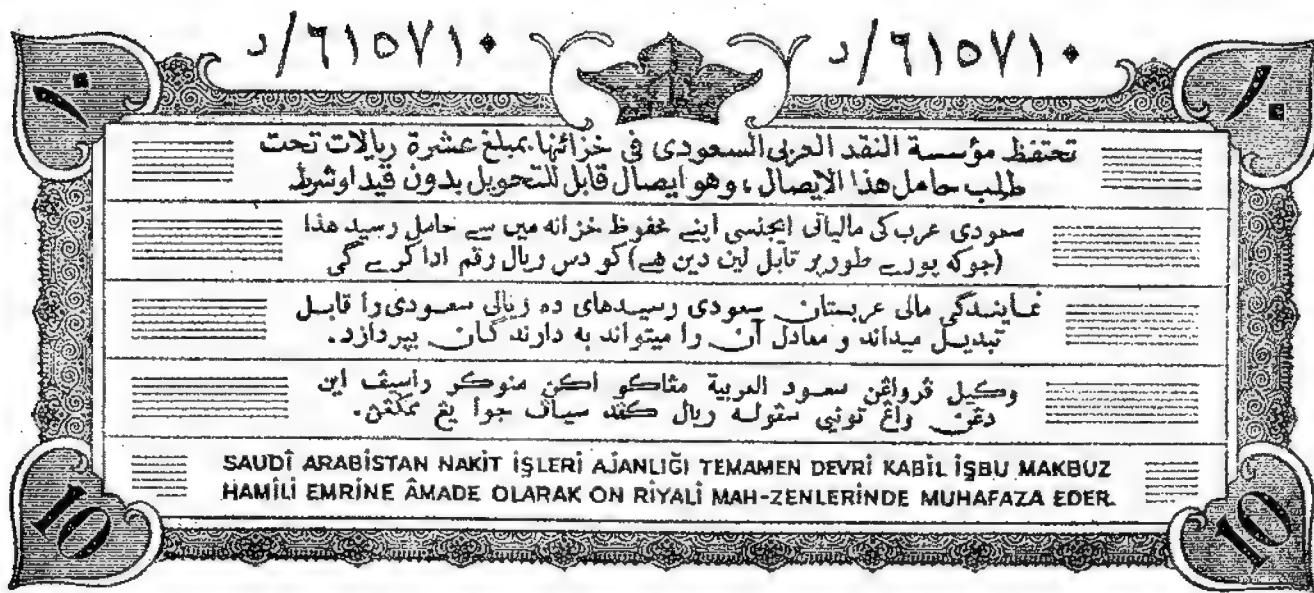 د/٦١٥٧١٠ د/٦١٥٧١٠
١٠ ١٠
تحتفظ مؤسسة النقد العربي السعودى فى خزائنها بمبلغ عشرة ريالات تحت
طلب حامل هذا الايصال، وهو ايصال قابل للتحويل بدون قيد اوشرط
سعودى عرب كى مالياتى ايجنسى اپنے محفوظ خزانه میں سے حامل رسيد هذا
(جوکه پورے طور پر قابل لین دین هے) کو دس ریال رقم ادا کرے گی
نمایندگی مالی عربستان سعودی رسیدهای ده ریالی سعودی را قابل
تبدیل میداند و معادل آن را میتواند به دارندگان بپردازد.
وكيل قرواڠن سعود العربية مڠاكو اكن منوكر راسيف اين
دڠن واڠ تونی سڤوله ريال كفد سياف جوا يڠ
SAUDİ ARABİSTAN NAKİT İŞLERİ AJANLIĞI TEMAMEN DEVRİ KABİL İŞBU MAKBUZ
HAMİLİ EMRİNE ÂMADE OLARAK ON RİYALİ MAH-ZENLERİNDE MUHAFAZA EDER.
10 10